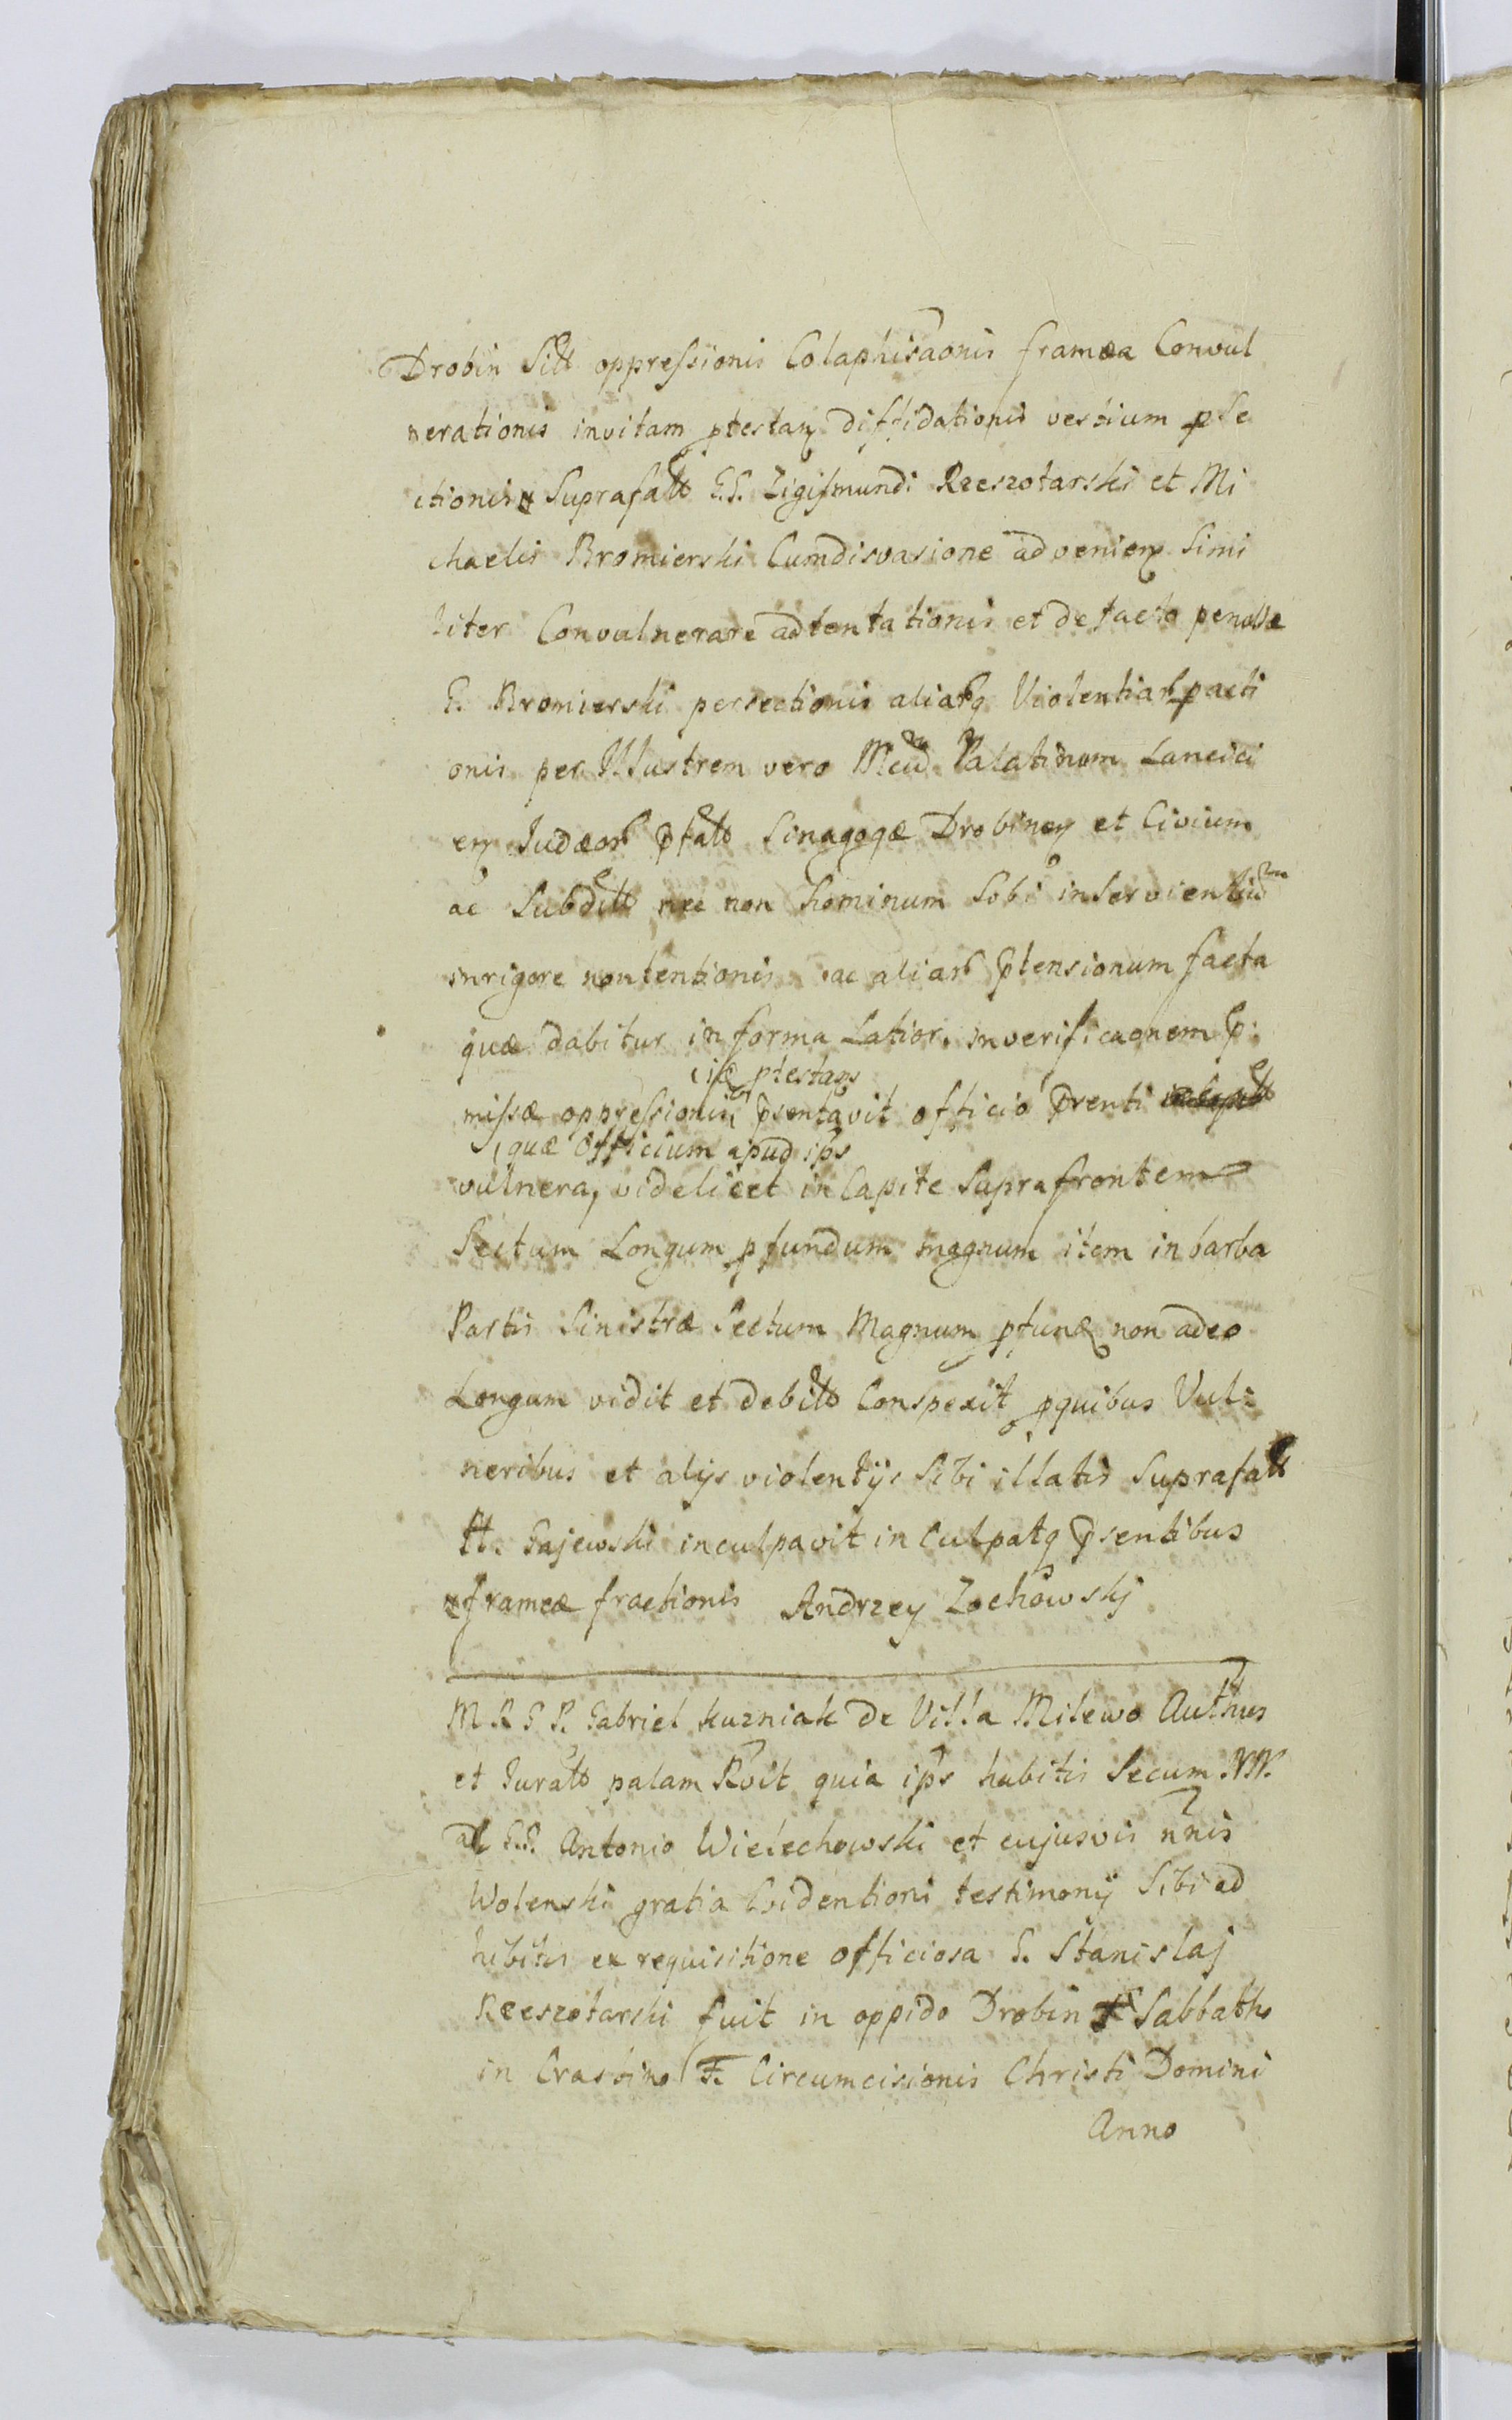 Drobin Sitt oppressionis Colaphisaonis framea Convul
nerationis invitam ptestan diffidationis vestium pse
ctionis Suprafatt G.G. Zigismundi Rzeszotarski et Mi
chaelis Bromierski Cum disvasione advenien Simi
liter Convulnerare adtentationis et de facto penulae
G. Bromierski persectionis aliarq Violentiar pacti
onis per Illustrem vero Palatinum Lancici
en Judæor pfatt Sinagogæ Drobinen et Civium
ac Subditt nec non hominum Sobi inservientium
in rigore non tentionis ac aliar ptensionum facta
quæ dabitur in forma Latior. in verificaonem p:
iæ ptestans
missæ oppressionis psentavit officio prenti
quæ Officium apud ips
vulnera, videlicet in Capite Supra frontem
Sectum Longum pfundum magnum item in barba
Partis Sinistræ Sectum Magnum pfund non adeo
Longum vidit et debitt Conspexit pquibus Vul=
neribus et alijs violentijs Sibi illatis Suprafatt
Gajewski inculpavit inculpatq psentibus
frameæ fractionis Andrzey Zochowskj
M R G P. Gabriel kuzniak de Villa Milewo Authus
et Juratt palam Rvit quia ips habitis Secum NN.
al G.G. Antonio Wielechowski et cujusvis nnis
Wolenski gratia Evidentioris testimonij Sibi ad
hibitis ex requisitione officiosa G. Stanislaj
Rzeszotarski fuit in oppido Drobin Sabbatho
in Crastino F. Circumcisionis Christi Domini
Anno